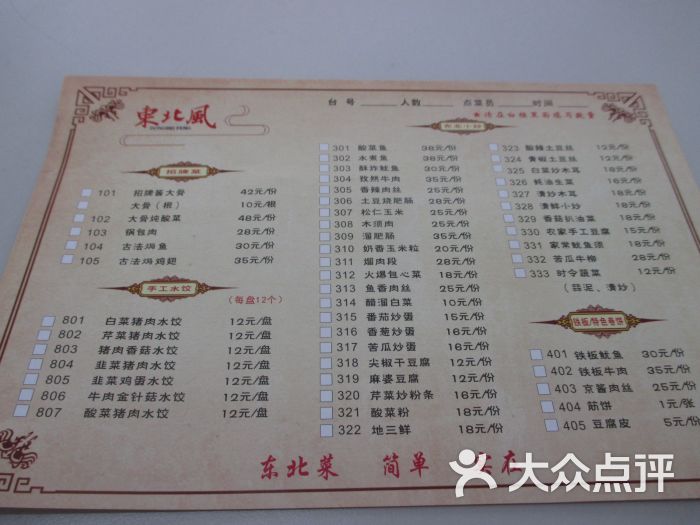 東北風
DONGBEI FENG
台号 人数 点菜员 时间
招牌菜
101 招牌酱大骨 42元/份
大骨(根) 10元/根
102 大骨炖酸菜 48元/份
103 锅包肉 28元/份
104 古法焗鱼 30元/份
105 古法焗鸡翅 35元/份
手工水饺
(每盘12个)
801 白菜猪肉水饺 12元/盘
802 芹菜猪肉水饺 12元/盘
803 猪肉香菇水饺 12元/盘
804 韭菜猪肉水饺 12元/盘
805 韭菜鸡蛋水饺 12元/盘
806 牛肉金针菇水饺 12元/盘
807 酸菜猪肉水饺 12元/盘
301 酸菜鱼 38元/份
302 水煮鱼 38元/份
303 酥炸鱿鱼 30元/份
304 孜然牛肉 35元/份
305 香辣肉丝 25元/份
306 土豆烧肥肠 35元/份
307 松仁玉米 25元/份
308 木须肉 25元/份
309 溜肥肠 35元/份
310 奶香玉米粒 20元/份
311 熘肉段 28元/份
312 火爆包心菜 18元/份
313 鱼香肉丝 25元/份
314 醋溜白菜 10元/份
315 番茄炒蛋 15元/份
316 香葱炒蛋 16元/份
317 苦瓜炒蛋 16元/份
318 尖椒干豆腐 12元/份
319 麻婆豆腐 12元/份
320 芹菜炒粉条 16元/份
321 酸菜粉 18元/份
322 地三鲜 18元/份
323 酸辣土豆丝 12元/份
324 青椒土豆丝 12元/份
325 白菜炒木耳 18元/份
326 耗油生菜 16元/份
327 清炒木耳 18元/份
328 清鲜小炒 18元/份
329 香菇扒油菜 18元/份
330 农家手工豆腐 15元/份
331 家常鱿鱼须 18元/份
332 苦瓜牛柳 28元/份
333 时令蔬菜 12元/份
(蒜泥、清炒)
铁板/特色卷饼
401 铁板鱿鱼 30元/份
402 铁板牛肉 35元/份
403 京酱肉丝 25元/份
404 筋饼 1元/张
405 豆腐皮 5元/份
东北菜 简单 实在
大众点评